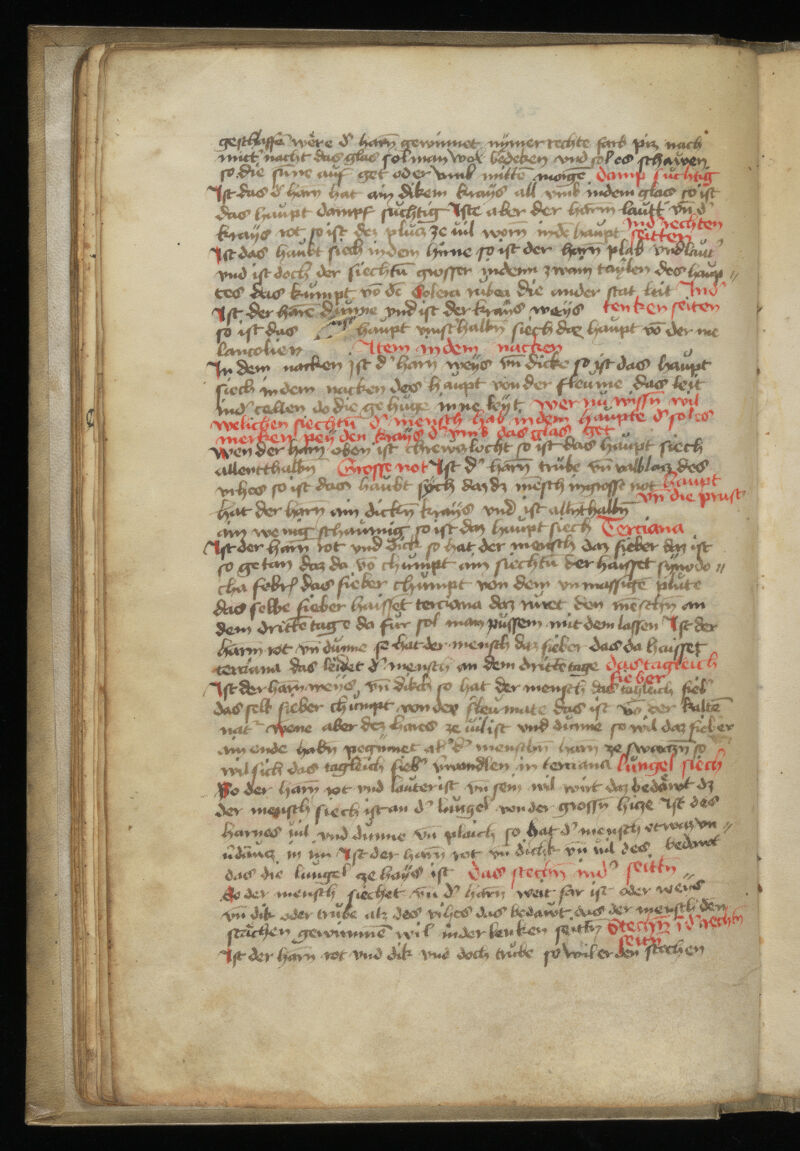 geschaffē wëre d' harn gewinnet nymer rechte farb piz nach
mitt' nacht das glas sol man wol bedeken vnd sol es schawen
so die sune auf get oder vmb mitte morge damp suchtig
Ist das d' harn hat ain dikem krays all vmb indem glas so ist
das haupt dampf suchtig Ist aber der harm lautt' vn̄ d'
krays rot so ist dez plutz ze uil worn inde haupt Ind' rechten seitten
Ist das haubt siech in dem hirne so ist der harn plab vnd laut'
vnd ist doch der siechtu grosser in denn zwain taylen des haup〃
tes das kumpt vō de Colera rubea die ander stat leit Ind'
Ist der hare dünne vnd ist der krays weys lenken seiten
so ist das haupt einhalbn siech daz haupt vō der me
lancolien Item in dem nacken
In dem nacken ist d' harn weys vn̄ dicke so ist das haupt
siech in dem nacken des haupt von der fleume das leit
ind' cellen do die gehuge inne leyt Wer nu wissn̄ wil
welichen siechtu d' mensch hab in dem haupte d' sol es
merken pey den krays d' vmb das glas get
Wen der harn oben ist so ist das haupt siech
allentthalbn̄ Grosse not Ist d' harn trübe vn̄ des
vihes so ist das haubt sych daz dz mēsch in grosse not haupt
hat der harn ain dickn krays vnd ist allnthalbn̄ vn̄ die prust
ain wenig schaumig so ist daz haupt siech Terciana
Ist der harn rot vnd dick so hat der mensch daz fieber daz ist
so getan daz da vō chumpt ain siechtu der haisset synodo〃
cha febr' das fieber chumpt von dem vnmassige plute
das selbe fieber haisset terciana daz den menschn an
dem dritte tage da für sol man püssem mit dem lassen Ist der
harn rot vn̄ dunne so hat der mensch daz fieber das da haisset
terciana das leidet d' mensch an dem dritte tage das tagleich fieber
Ist der harn weys vn̄ dikch so hat der mensch das tagleich fieb'
das selb fieber chumpt von der fleumate das ist vō der kalte
nat' Wene aber dez hares ze uil ist vnd dünne so wil daz fieber
ain ende habn peginnet ab' d' menschn harn ze swarczn so
wil sich das tagleich fieb' v'wandlen in terciana lungel siech
So der harn rot vnd lauter ist vn̄ sein wil wirt daz bedäwt dz
der mensch siech ist an d' lungel von der grossn hicze Ist des
harnes uil vnd dunne vn̄ plaich so hat d' mensch etwaz vn〃
in im Ist der harn rot vn̄ dickk vn̄ uil des bedäwt
das die lungel ze hays ist das stechn̄ ind' seittn̄
So der mensch siechet vn̄ d' harn weit far ist oder weis
vn̄ dik oder trübe alz des vihes das bedawt das der mensch den
stächen gewinnē wil in der lenken seittn Stechn̄ i d' rechtn seitn
Ist der harn rot vnd dik vnd doch trübe so wil er den stechen